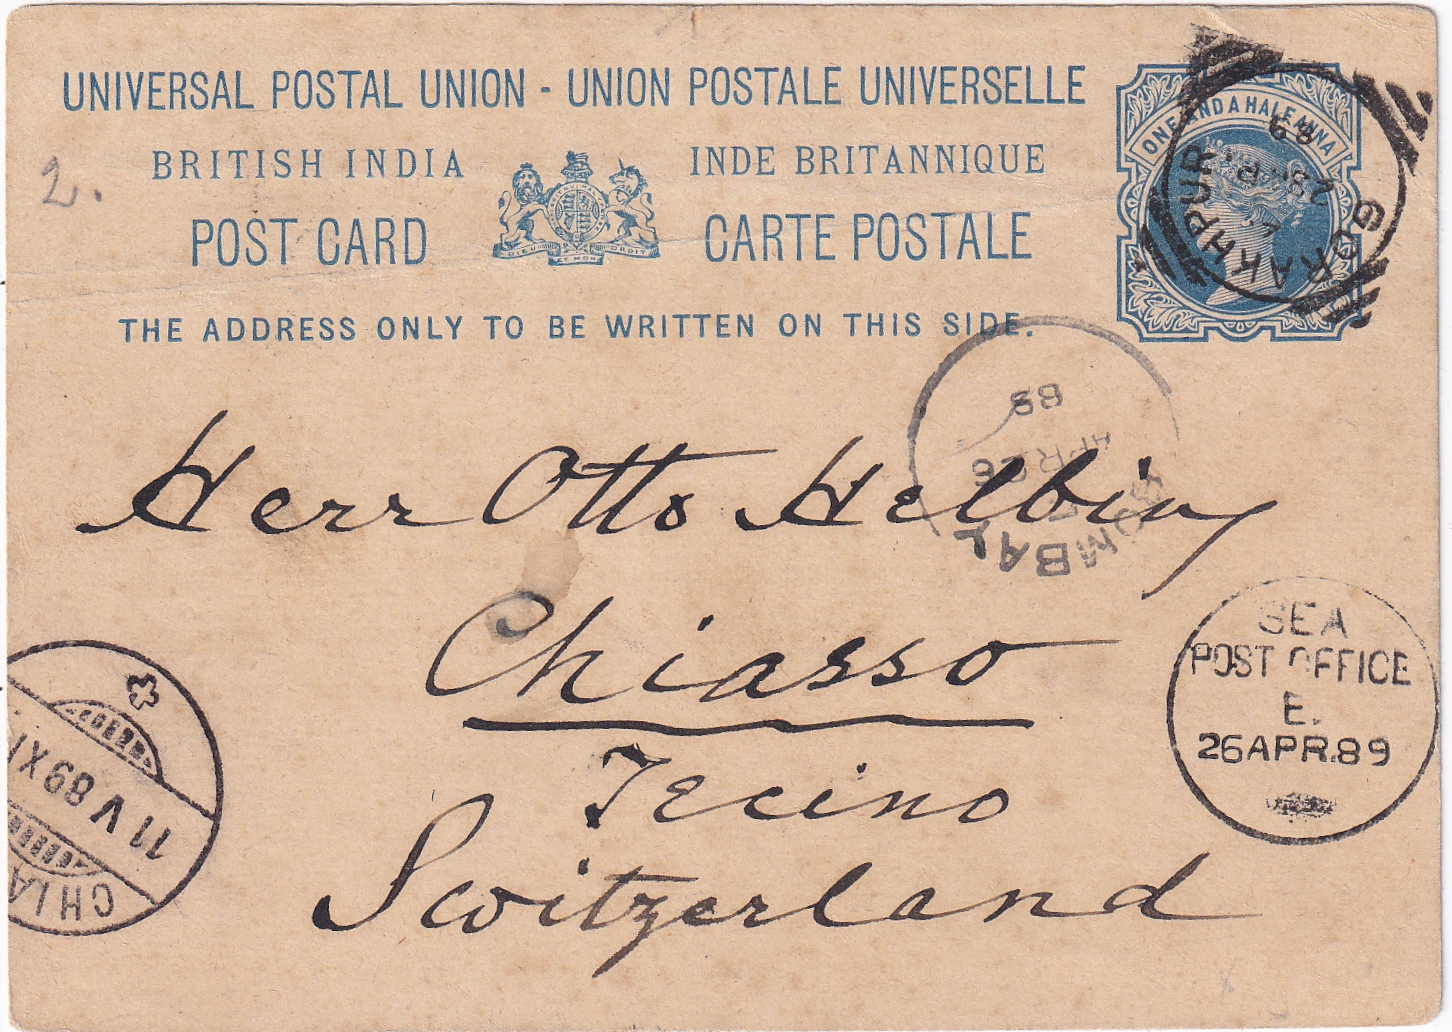 UNIVERSAL POSTAL UNION - UNION POSTALE UNIVERSELLE
BRITISH INDIA
INDE BRITANNIQUE
POST CARD
CARTE POSTALE
DIEU ET MON DROIT
THE ADDRESS ONLY TO BE WRITTEN ON THIS SIDE.
ONE AND A HALF ANNA
GORAKHPUR
89
2.
BOMBAY
APR 26
89
Herr Otto Helbing
Chiasso
Tecino
Switzerland
SEA
POST OFFICE
E.
26 APR.89
11 V 89 XI
CHIA